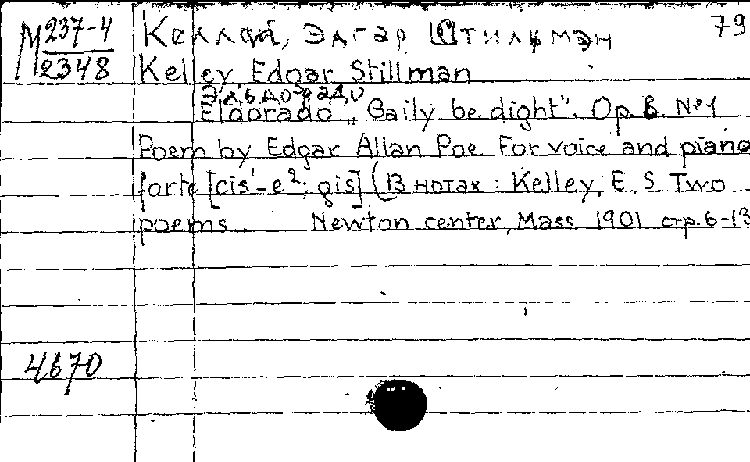 М 237-4 Келлей, Эдгар Стильмэн 79
2348 Kelley, Edgar Stillman
Эльдорадо
Eldorado „Gaily be dight". Op. 8. №1
Poem by Edgar Allan Poe. For voice and piano
forte [cis'-e²; gis] (В нотах: Kelley, E. S. Two
poems. Newton center, Mass, 1901 стр. 6-13
4670